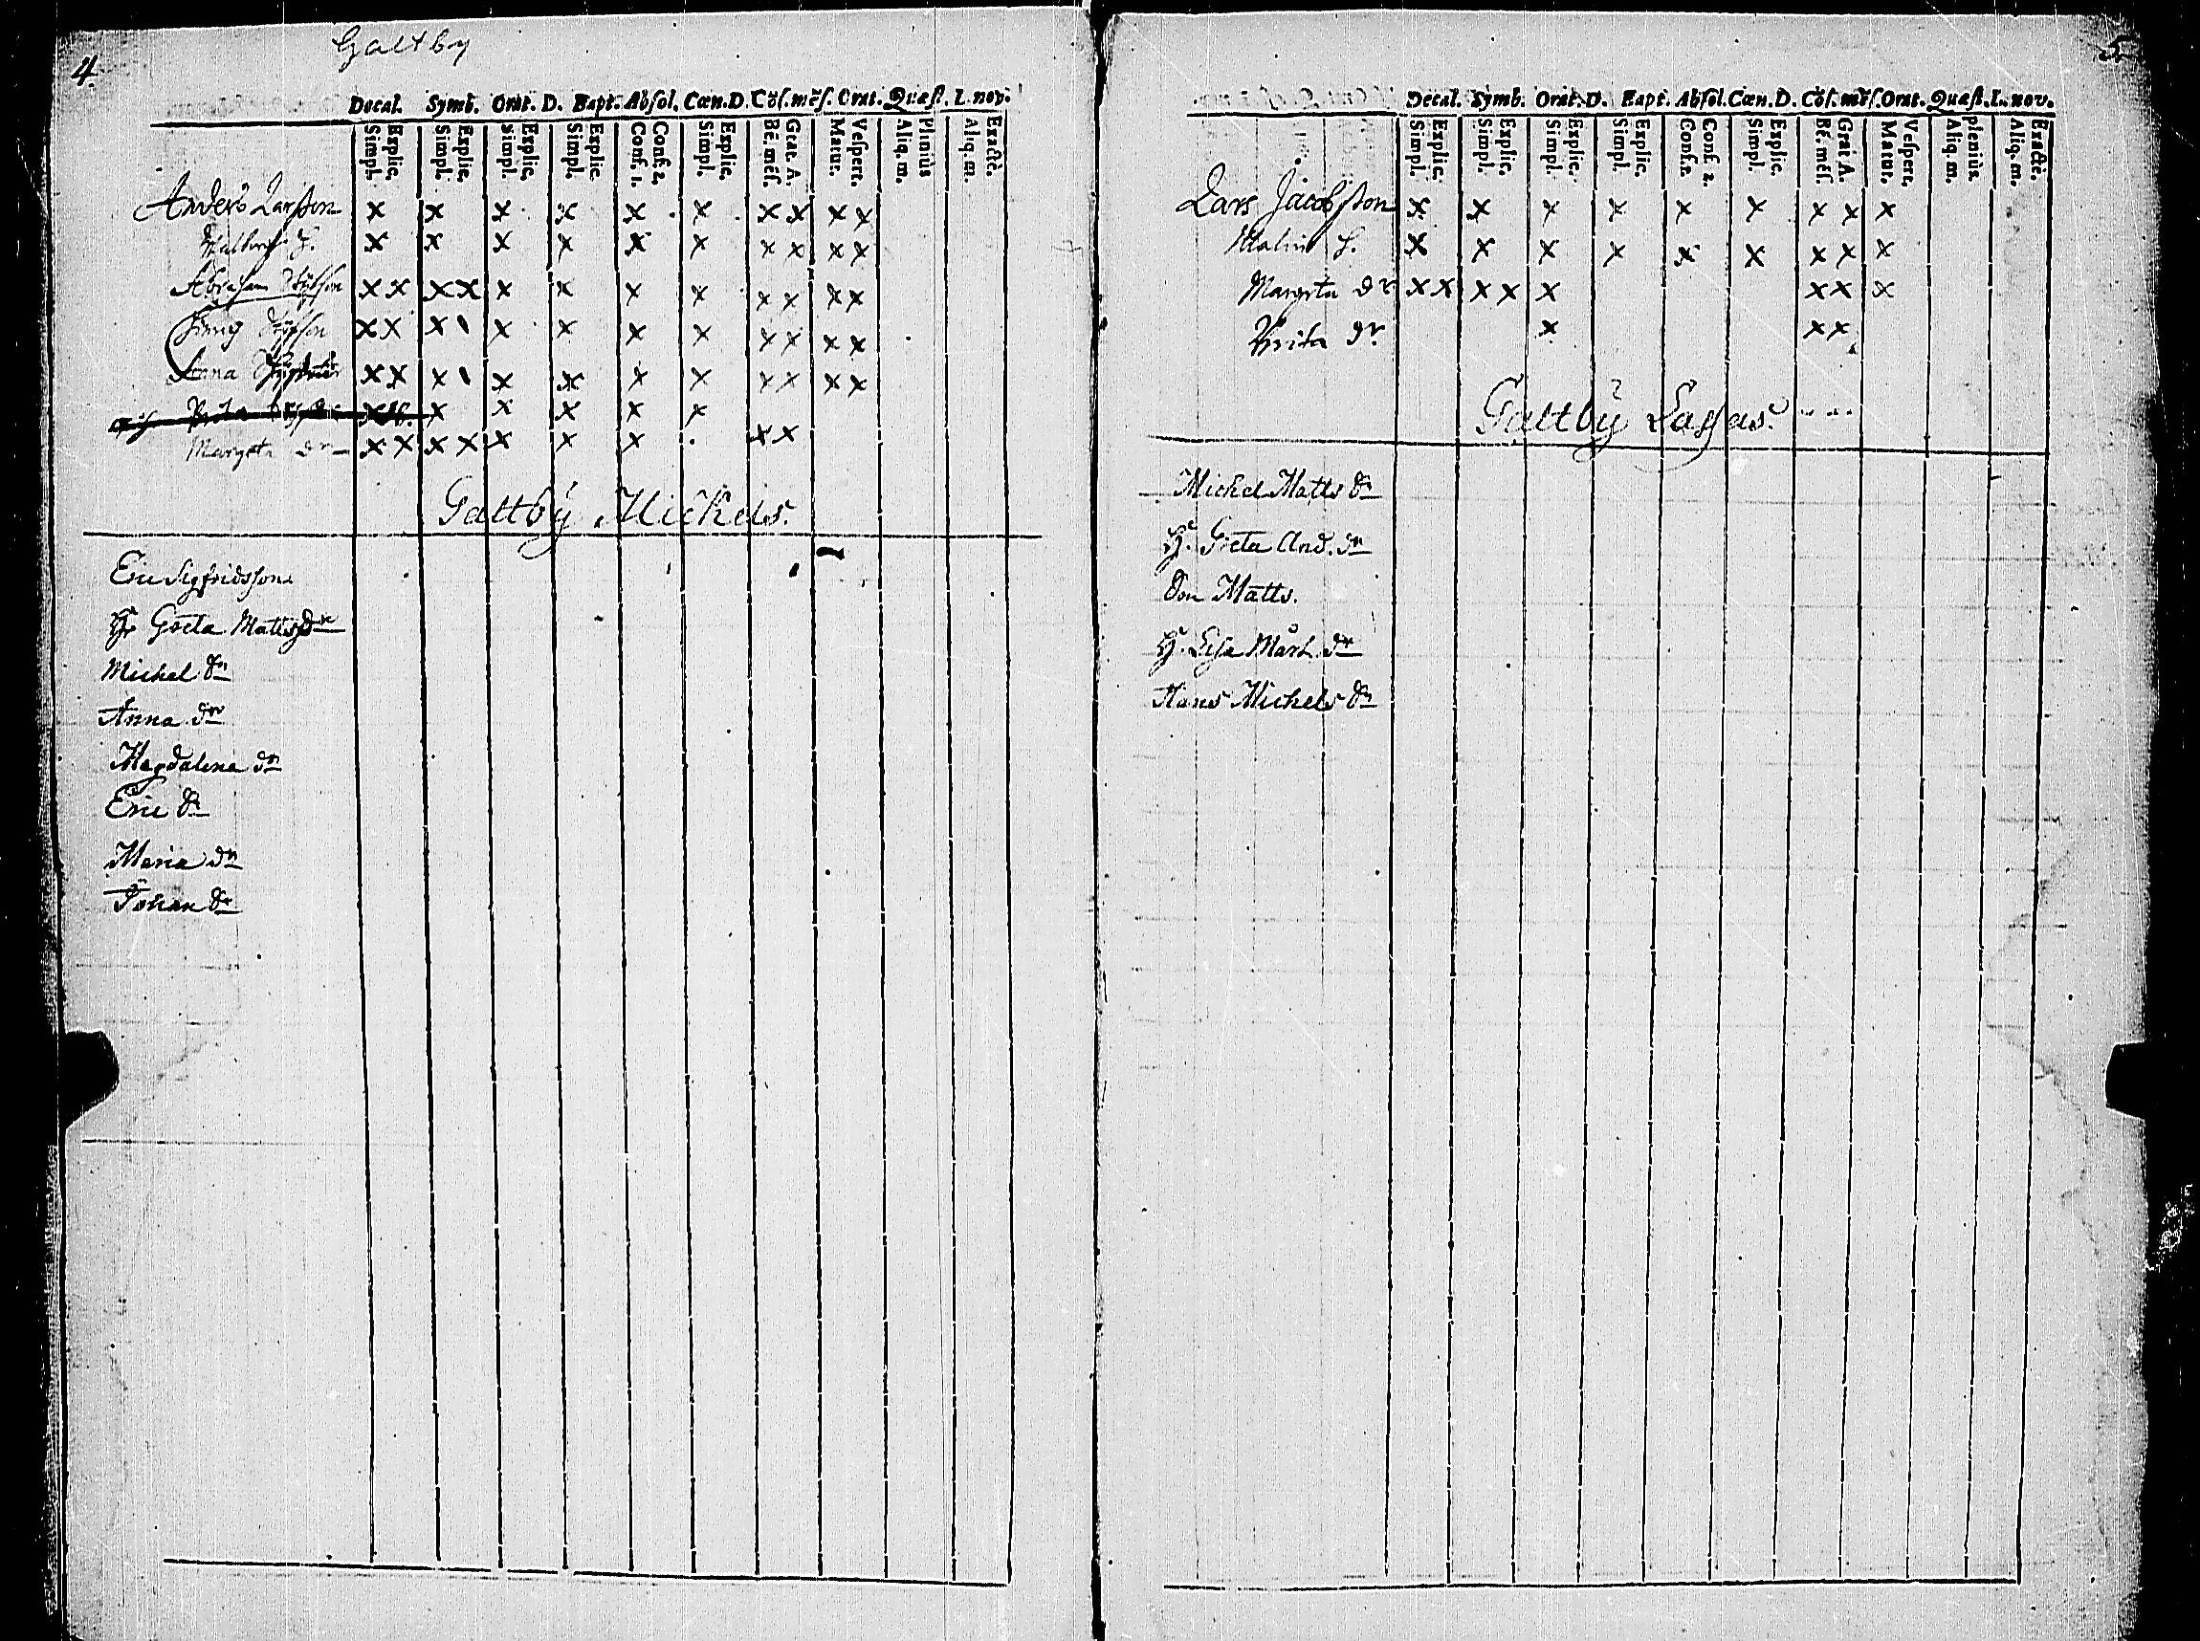 4.
Galtby
Decal. Symb. Orat. D. Bapt. Absol. Cœn. D. Cōf. mēs. Orat. Quæst. L. nov.
Simpl. Explic. Simpl. Explic. Simpl. Explic. Simpl. Explic. Conf. 1. Conf. 2. Simpl. Explic. Bē. mēs. Grat. A. Matur. Vespert. Aliq. m. Pleniùs Aliq. m. Exactè.
Anders Larsson x x x x x x x x x x
Walborg h. x x x x x x x x x x
Abraham x x x x x x x x x x x x
x x x x x x x x x x x
Anna x x x x x x x x x x x
Brita x x x x x x
Margeta dr x x x x x x x x x
Galtbÿ Mickels.
Eric Sigfridsson
Hr Greta Matts dr
Michel dn
Anna dr
Magdalena dr
Eric dn
Maria dr
Johan dn
5.
Decal. Symb. Orat. D. Bapt. Absol. Cœn. D. Cōf. mēs. Orat. Quæst. L. nov.
Simpl. Explic. Simpl. Explic. Simpl. Explic. Simpl. Explic. Conf. 1. Conf. 2. Simpl. Explic. Bē. mēs. Grat A. Matur. Vespert. Aliq. m. pleniùs. Aliq. m. Exactè.
Lars Jacobsson x x x x x x x x x
Malin h. x x x x x x x x x
Margeta dr x x x x x x x x
Brita dr. x x x
Galtbÿ Lassas.
Michel Matts dn
H. Greta And. dr
Son Matts.
H. Lisa Mårt. dr
Hans Michels dn